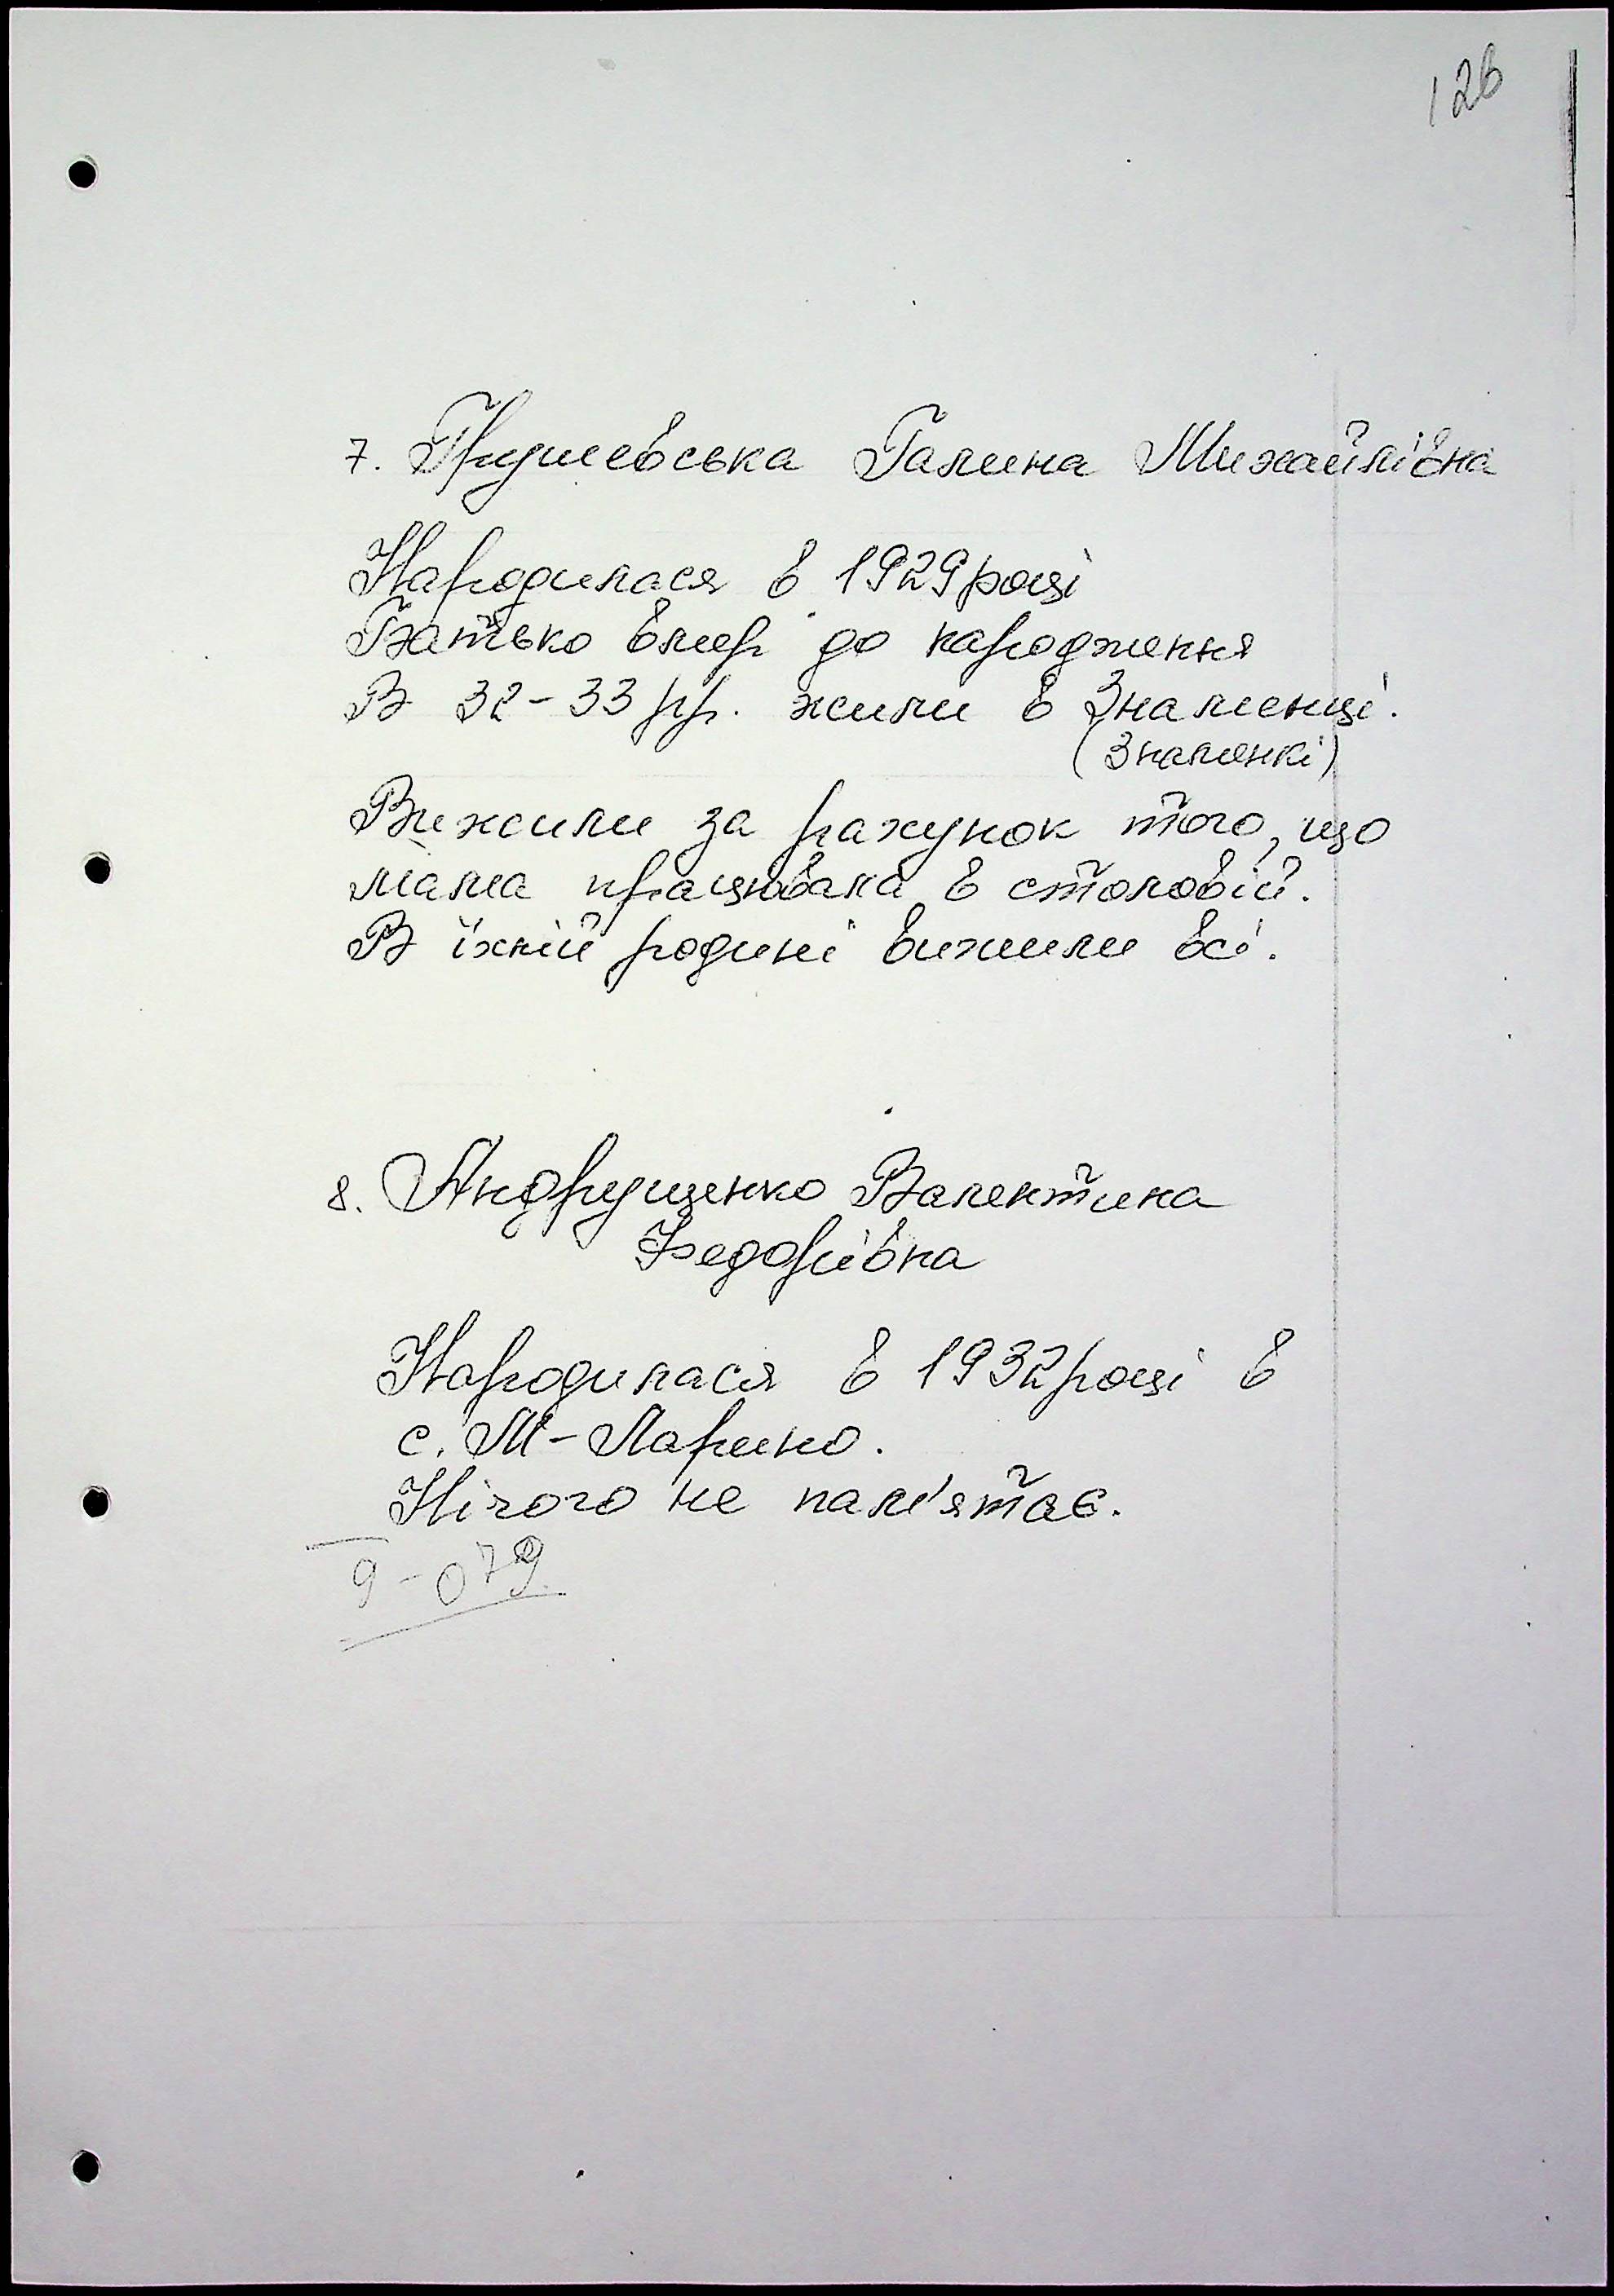 126
7. Грушевська Галина Михайлівна
Народилася в 1929 році
Батько вмер до народження
В 32-33 рр. жили в Знаменці.
(Знамянкі)
Вижили за рахунок того, що
мама працювала в столовій.
В їхній родині вижили всі.
8. Андрущенко Валентина
Федорівна
Народилася в 1932 році в
с. М-Ларино.
Нічого не пам'ятає.
9-079